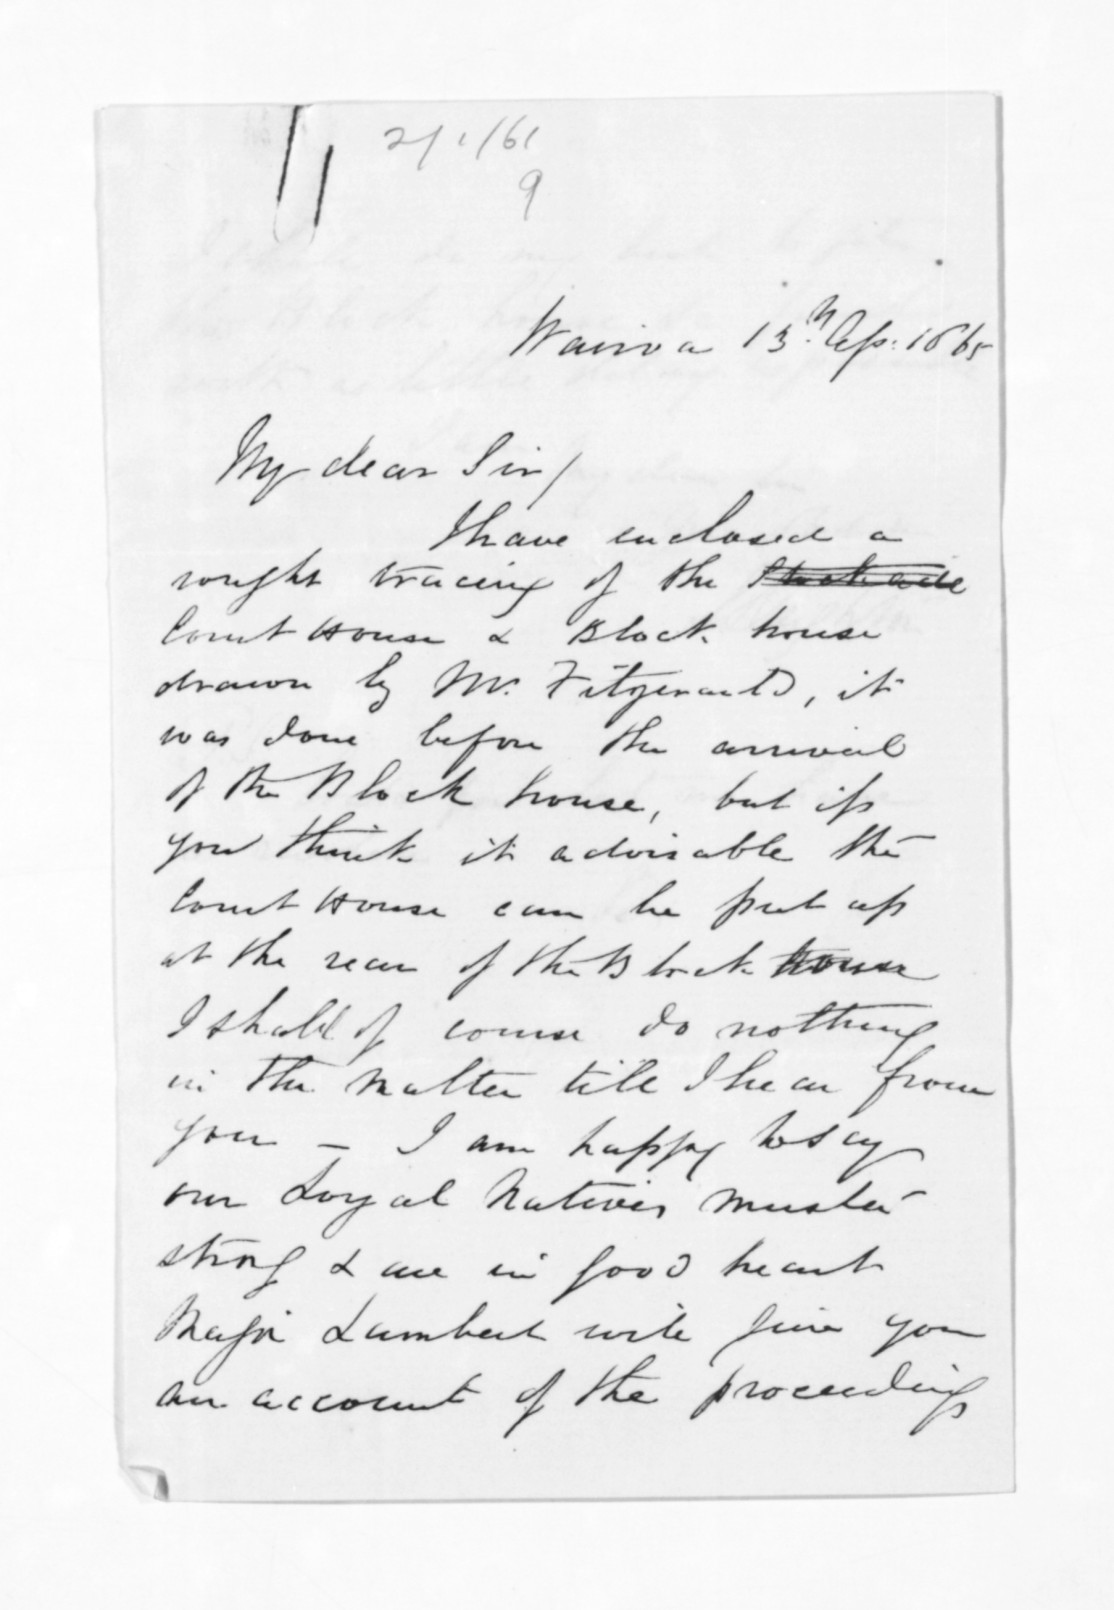 2/1/61
9
Wairoa 13th Ap: 1865
My dear Sir/
I have enclosed a
rought tracing of the Stockade
Court House & Block house
drawn by Mr. Fitzgerald, it
was done before the arrival
of the Block house, but if
you think it advisable the
Court House can be put up
at the rear of the Block house
I shall of course do nothing
in the matter till I hear from
you — I am happy to say
our Loyal Natives muster
strong & are in good heart
Major Lambert will give you
an account of the proceedings